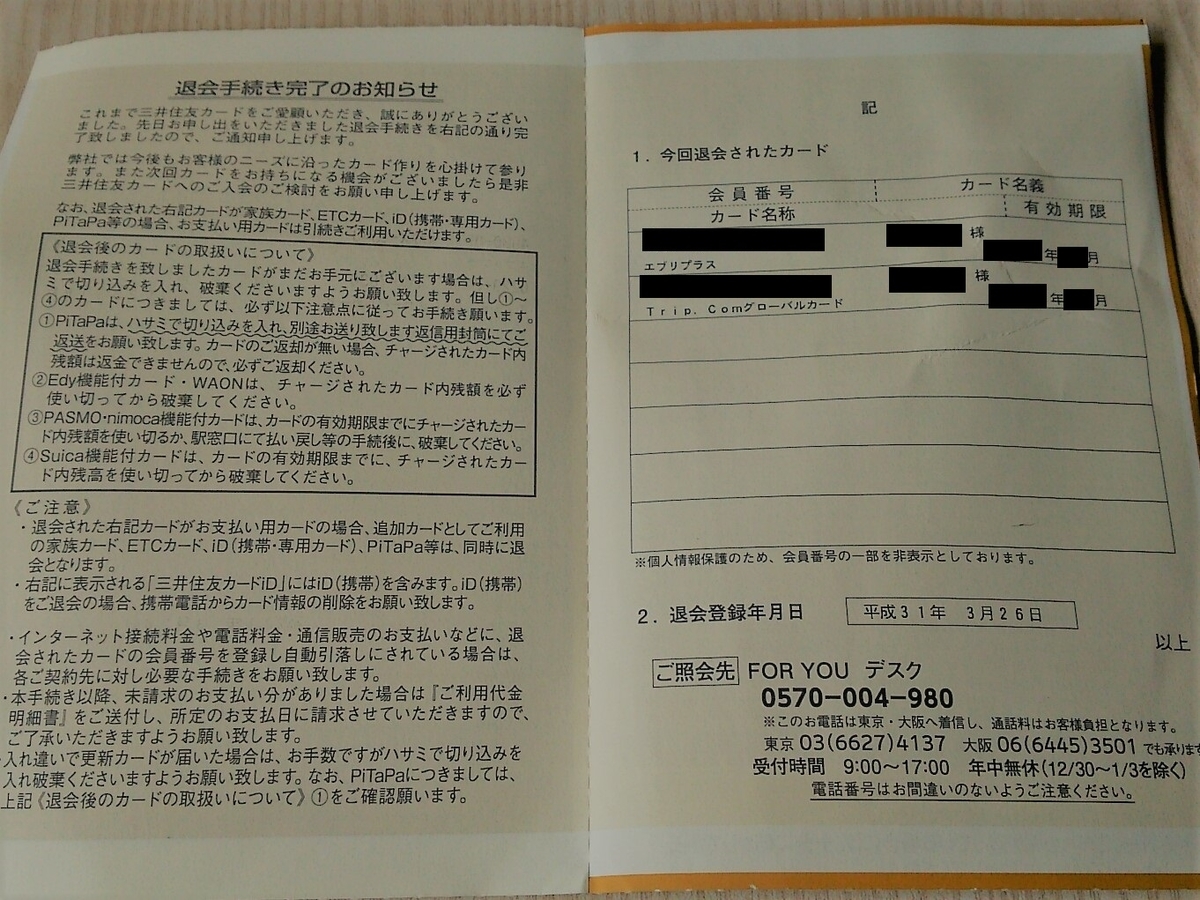 退会手続き完了のお知らせ
これまで三井住友カードをご愛顧いただき、誠にありがとうござい
ました。先日お申し出をいただきました退会手続きを右記の通り完
了致しましたので、ご通知申し上げます。
弊社では今後もお客様のニーズに沿ったカード作りを心掛けて参り
ます。また次回カードをお持ちになる機会がございましたら是非
三井住友カードへのご入会のご検討をお願い申し上げます。
なお、退会された右記カードが家族カード、ETCカード、iD(携帯・専用カード)、
PiTaPa等の場合、お支払い用カードは引続きご利用いただけます。
《退会後のカードの取扱いについて》
退会手続きを致しましたカードがまだお手元にございます場合は、ハサ
ミで切り込みを入れ、破棄くださいますようお願い致します。但し①~
④のカードにつきましては、必ず以下注意点に従ってお手続き願います。
①PiTaPaは、ハサミで切り込みを入れ、別途お送り致します返信用封筒にてご
返送をお願い致します。カードのご返却が無い場合、チャージされたカード内
残額は返金できませんので、必ずご返却ください。
②Edy機能付カード・WAONは、チャージされたカード内残額を必ず
使い切ってから破棄してください。
③PASMO・nimoca機能付カードは、カードの有効期限までにチャージされたカー
ド内残額を使い切るか、駅窓口にて払い戻し等の手続後に、破棄してください。
④Suica機能付カードは、カードの有効期限までに、チャージされたカー
ド内残高を使い切ってから破棄してください。
《ご注意》
・退会された右記カードがお支払い用カードの場合、追加カードとしてご利用
の家族カード、ETCカード、iD(携帯・専用カード)、PiTaPa等は、同時に退
会となります。
・右記に表示される「三井住友カードiD」にはiD(携帯)を含みます。iD(携帯)
をご退会の場合、携帯電話からカード情報の削除をお願い致します。
・インターネット接続料金や電話料金・通信販売のお支払いなどに、退
会されたカードの会員番号を登録し自動引落しにされている場合は、
各ご契約先に対し必要な手続きをお願い致します。
・本手続き以降、未請求のお支払い分がありました場合は『ご利用代金
明細書』をご送付し、所定のお支払日に請求させていただきますので、
ご了承いただきますようお願い致します。
・入れ違いで更新カードが届いた場合は、お手数ですがハサミで切り込みを
入れ破棄くださいますようお願い致します。なお、PiTaPaにつきましては、
上記《退会後のカードの取扱いについて》①をご確認願います。
記
1. 今回退会されたカード
会員番号 カード名義
カード名称 有効期限
様
エブリプラス 年 月
様
Trip. Comグローバルカード 年 月
※個人情報保護のため、会員番号の一部を非表示としております。
2. 退会登録年月日 平成31年 3月26日
以上
ご照会先 FOR YOU デスク
0570-004-980
※このお電話は東京・大阪へ着信し、通話料はお客様負担となります。
東京 03(6627)4137 大阪 06(6445)3501 でも承ります
受付時間 9:00~17:00 年中無休(12/30~1/3を除く)
電話番号はお間違いのないようご注意ください。